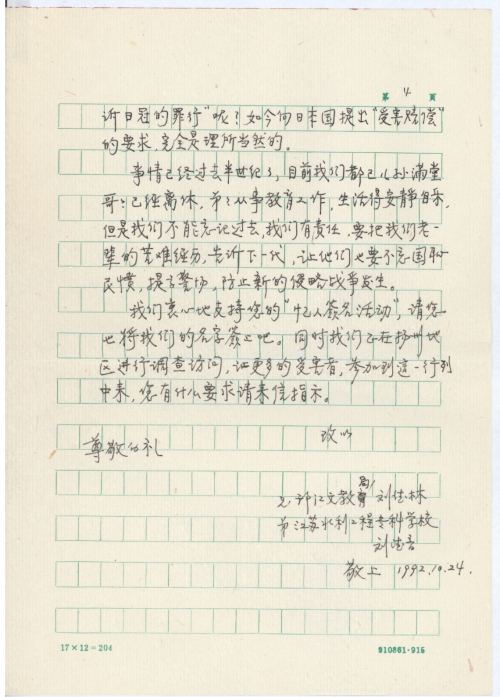 第 4 页
诉日冠的罪行"呢?如今向日本国提出"受害赔偿"
的要求,完全是理所当然的。
事情已经过去半世纪了,目前我们都已儿孙满堂
哥哥已经离休,弟弟从事教育工作,生活得安静自乐,
但是我们不能忘记过去,我们有责任,要把我们老一
辈的苦难经历,告诉下一代,让他们也要不忘国耻
民愤,提高警惕,防止新的侵略战争发生。
我们衷心地支持您的"亿人签名活动",请您
也将我们的名字签上吧。同时我们正在扬州地
区进行调查访问,让更多的受害者,参加到这一行列
中来,您有什么要求请来信指示。
致以
尊敬的礼
兄 邗江文教局 刘佳林
弟 江苏水利工程专科学校
刘
敬上 1992.10.24.
17×12=204
910861·915